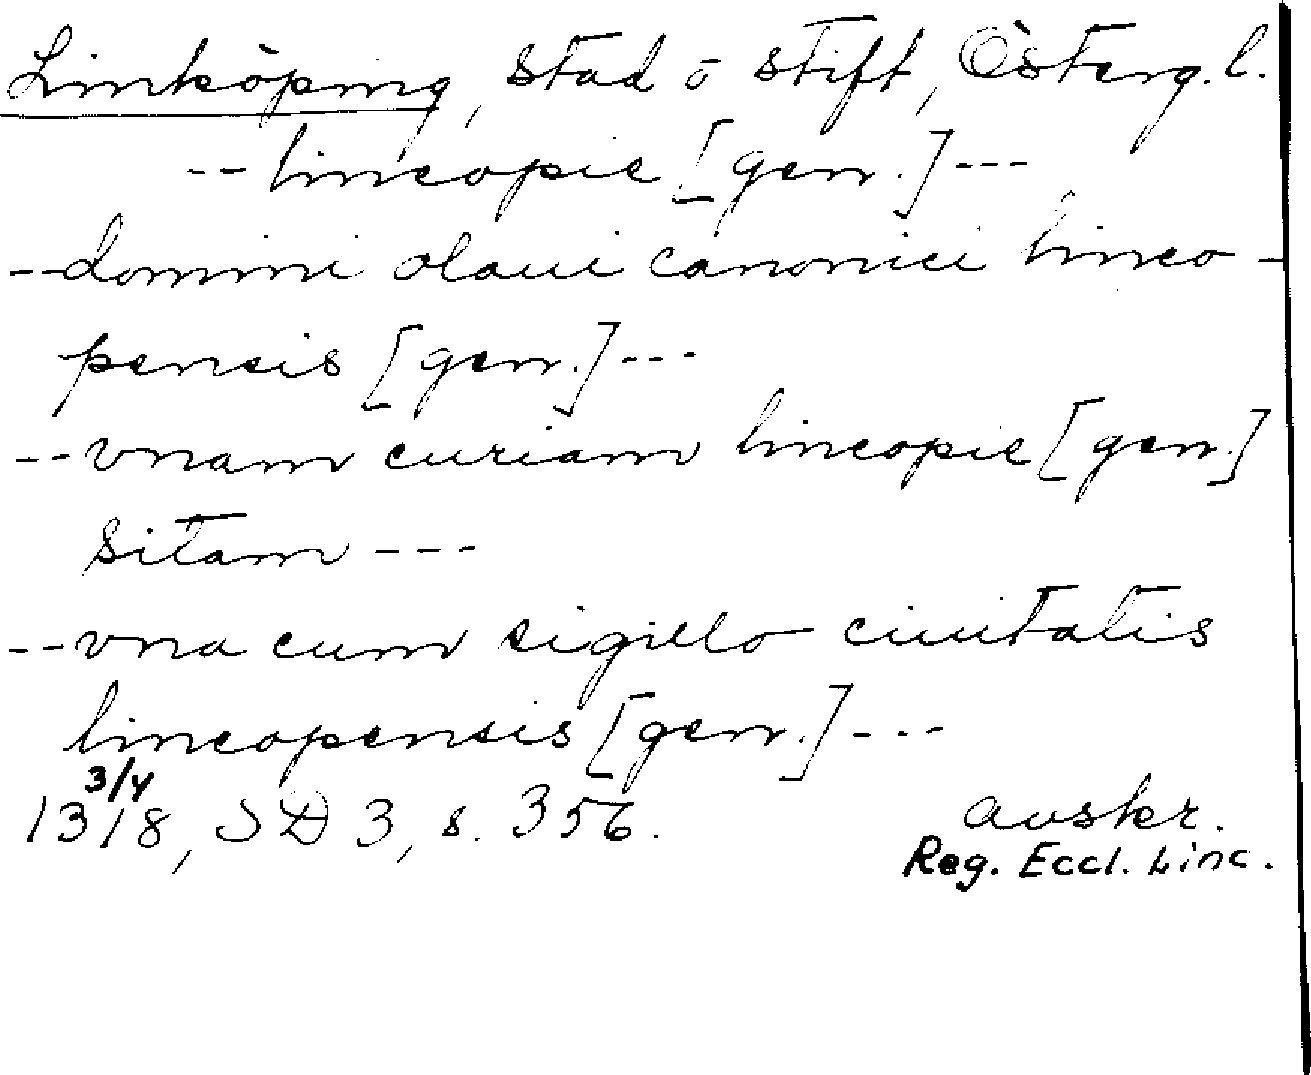 Linköping, stad o stift, Österg.l.
-- lincopie [gen.] ---
-- domini olaui canonici linco-
pensis [gen.] ---
-- vnam curiam lincopie [gen.]
sitam ---
-- vna cum sigillo ciuitatis
lincopensis [gen.] ---
3/4
1318, SD 3, s. 356.
avskr.
Reg. Eccl. Linc.